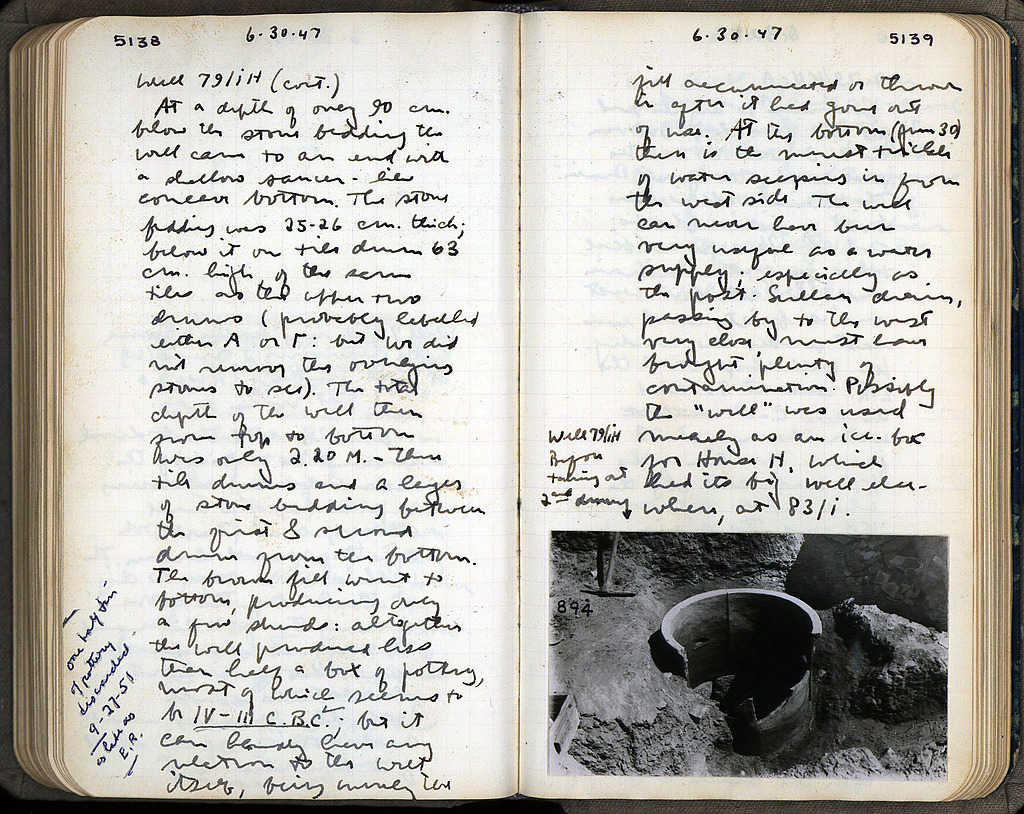 5138
6·30·47
Well 79/ΙΗ (cont.)
At a depth of only 90 cm.
below the stone bedding the
well came to an end with
a shallow saucer-like
concave bottom. The stone
bedding was 25-26 cm. thick;
below it one tile drum 63
cm. high, of the same
tiles as the upper two
drums (probably labelled
either A or Γ: but we did
not remove the overlying
stones to see). The total
depth of the well then
from top to bottom
was only 2.20 M. - Three
tile drums and a layer
of stone bedding between
the first & second
drums from the bottom.
The brown fill went to
bottom, producing only
a few sherds: altogether
the well produced less
than half a box of pottery,
most of which seems to
be IV-III C.B.C.; but it
can hardly have any
relation to the well
itself, being merely the
one half tin
of pottery
discarded
9-21-51
as late
E.R.
6·30·47
5139
fill accumulated or thrown
in after it had gone out
of use. At the bottom (June 30)
there is the merest trickle
of water seeping in from
the west side. The well
can never have been
very useful as a water
supply; especially as
the post-Sullan drain,
passing by to the west
very close, must have
brought plenty of
contamination. Possibly
the "well" was used
merely as an ice-box
for House H, which
had its big well else-
where, at 83/Ι.
Well 79/ΙΗ
Before
taking out
2nd drum
894